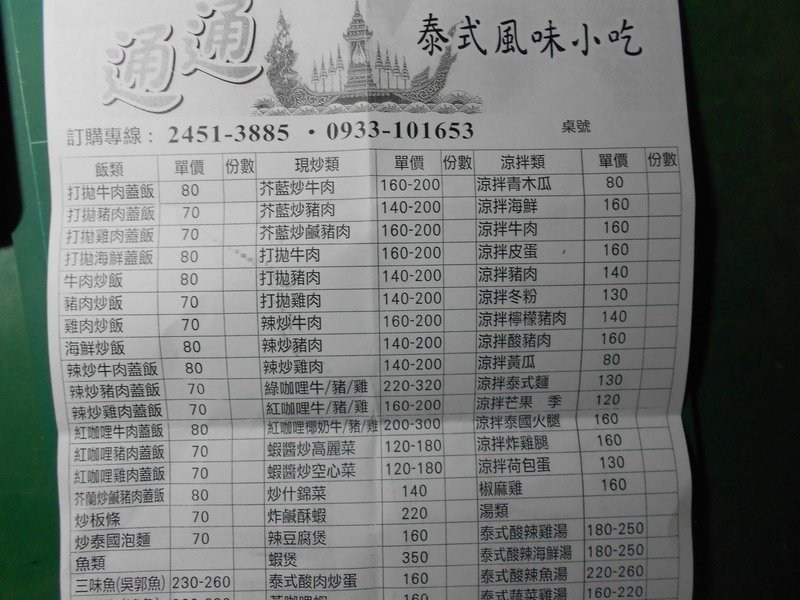 通通 泰式風味小吃
訂購專線： 2451-3885 ・0933-101653 桌號
飯類 單價 份數 現炒類 單價 份數 涼拌類 單價 份數
打拋牛肉蓋飯 80 芥藍炒牛肉 160-200 涼拌青木瓜 80
打拋豬肉蓋飯 70 芥藍炒豬肉 140-200 涼拌海鮮 160
打拋雞肉蓋飯 70 芥藍炒鹹豬肉 160-200 涼拌牛肉 160
打拋海鮮蓋飯 80 打拋牛肉 160-200 涼拌皮蛋 160
牛肉炒飯 80 打拋豬肉 140-200 涼拌豬肉 140
豬肉炒飯 70 打拋雞肉 140-200 涼拌冬粉 130
雞肉炒飯 70 辣炒牛肉 160-200 涼拌檸檬豬肉 140
海鮮炒飯 80 辣炒豬肉 140-200 涼拌酸豬肉 160
辣炒牛肉蓋飯 80 辣炒雞肉 140-200 涼拌黃瓜 80
辣炒豬肉蓋飯 70 綠咖哩牛/豬/雞 220-320 涼拌泰式麵 130
辣炒雞肉蓋飯 70 紅咖哩牛/豬/雞 160-200 涼拌芒果 季 120
紅咖哩牛肉蓋飯 80 紅咖哩椰奶牛/豬/雞 200-300 涼拌泰國火腿 160
紅咖哩豬肉蓋飯 70 蝦醬炒高麗菜 120-180 涼拌炸雞腿 160
紅咖哩雞肉蓋飯 70 蝦醬炒空心菜 120-180 涼拌荷包蛋 130
芥蘭炒鹹豬肉蓋飯 80 炒什錦菜 140 椒麻雞 160
炒板條 70 炸鹹酥蝦 220 湯類
炒泰國泡麵 70 辣豆腐煲 160 泰式酸辣雞湯 180-250
魚類 蝦煲 350 泰式酸辣海鮮湯 180-250
三味魚(吳郭魚) 230-260 泰式酸肉炒蛋 160 泰式酸辣魚湯 220-260
160 泰式蔬菜雞湯 160-220